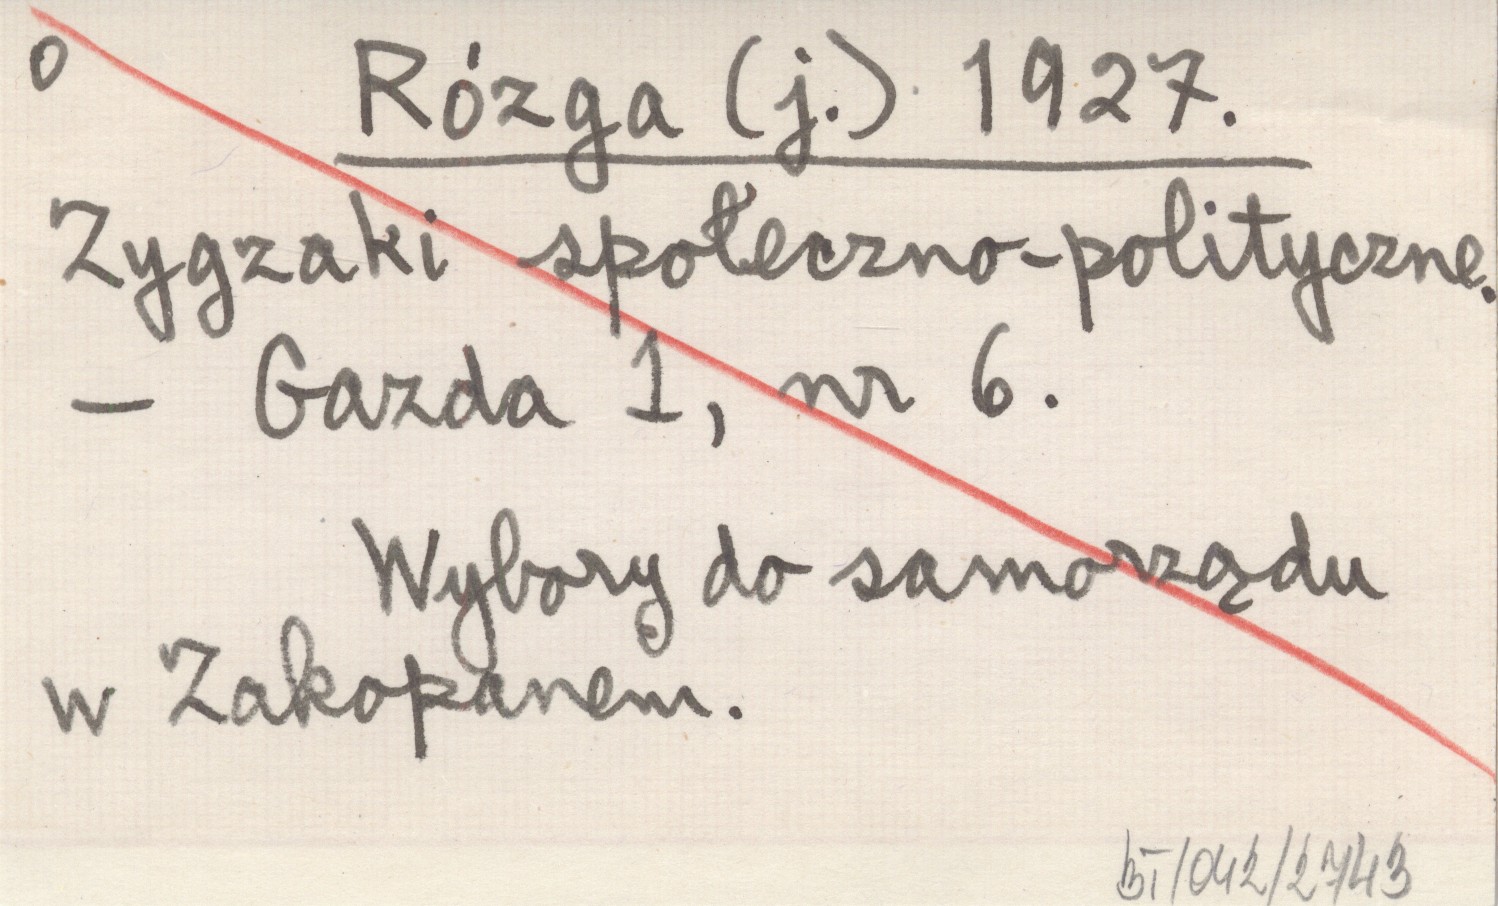 o
Rózga (j.) 1927.
Zygzaki społeczno-polityczne.
— Gazda 1, nr 6.
Wybory do samorządu
w Zakopanem.
BI/042/2743